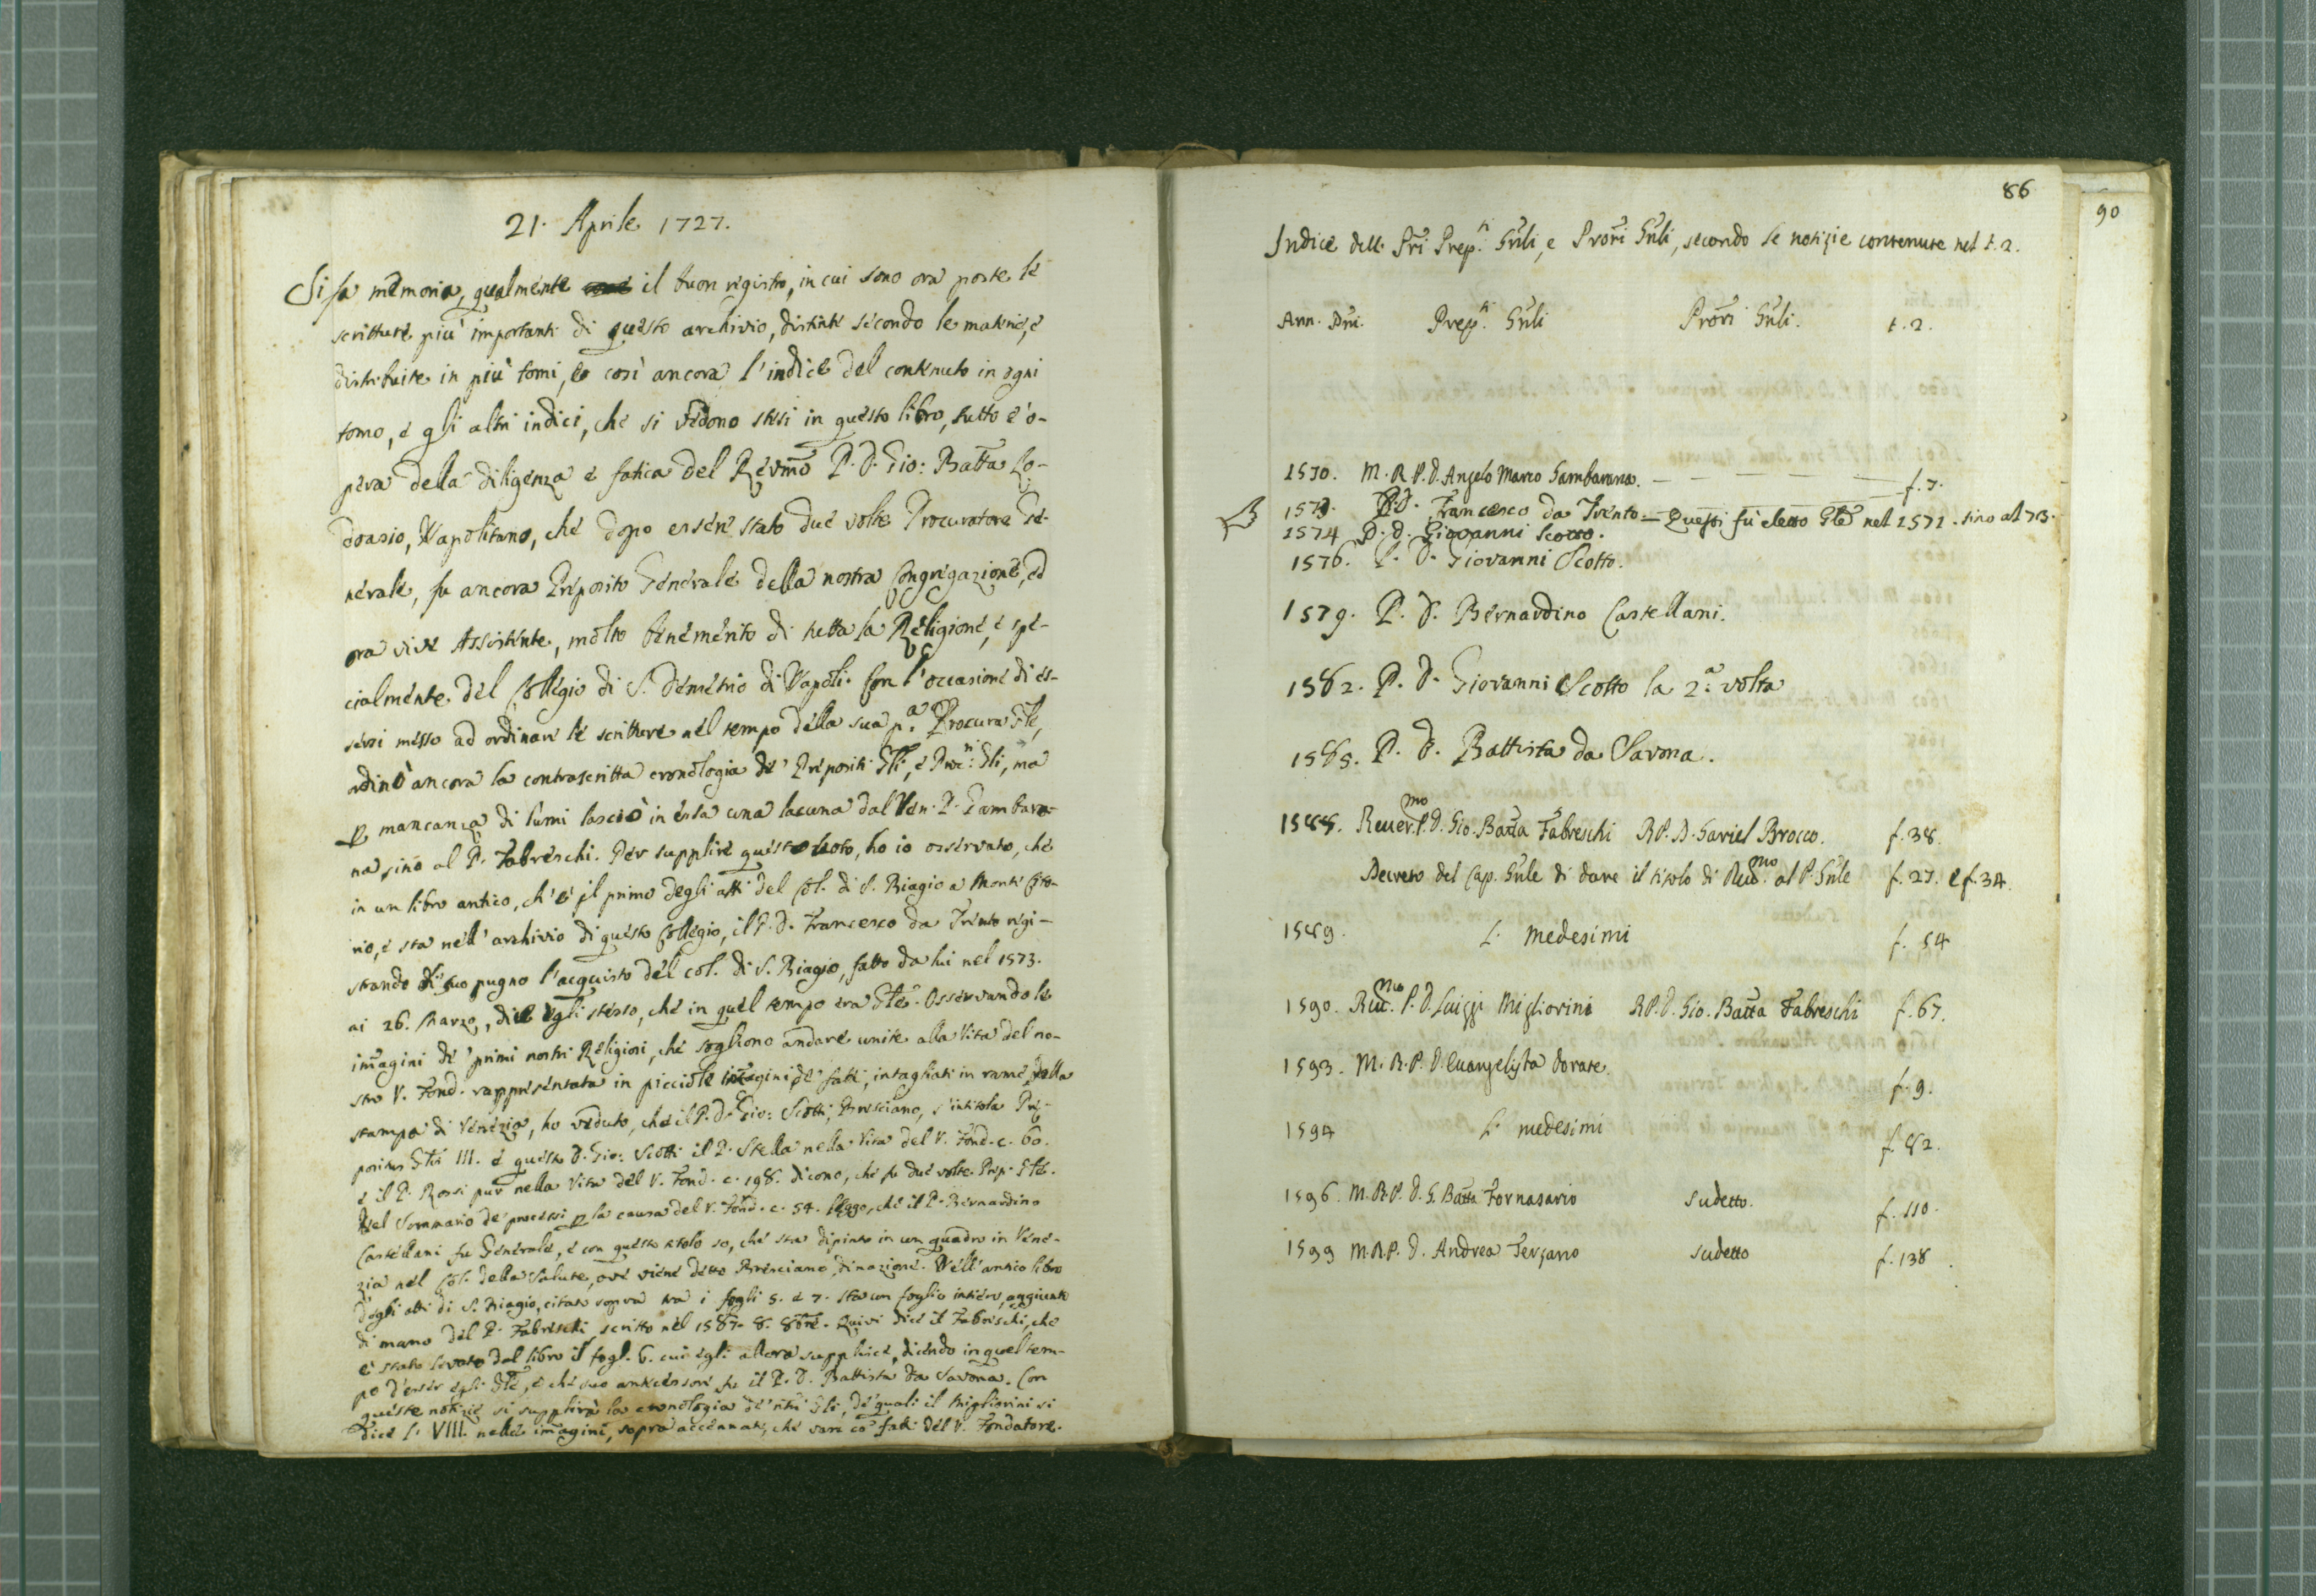 21. Aprile 1727.
Si fa memoria, qualmente il buon registro, in cui sono ora poste le
scritture più importanti di questo archivio, distinte secondo le materie, e
distribuite in più tomi, e così ancora l'indice del contenuto in ogni
tomo, e gli altri indici, che si vedono stesi in questo libro, tutto è o-
pera della diligenza e fatica del Revmo P. D. Gio: Batta Lo-
doasio, Napolitano, che dopo essere stato due volte Procuratore Ge-
nerale, fu ancora Preposito Generale della nostra Congregazione, ed
ora vive Assistente, molto benemerito di tutta la Religione, e spe-
cialmente del Collegio di S. Demetrio di Napoli. Con l'occasione di es-
sersi messo ad ordinare le scritture nel tempo della sua p.a Procura Gle,
ordinò ancora la contrascritta cronologia de' Prepositi Gli, e Proc.ri Gli, ma
p mancanza di lumi lasciò in essa una lacuna dal Ven. P. Gambara-
na sino al P. Fabreschi. Per supplire questo vuoto, ho io osservato, che
in un libro antico, ch'è il primo degli atti del Col. di S. Biagio a Monte Cito-
rio, e sta nell'archivio di questo Collegio, il P. D. Francesco da Trento regi-
strando di suo pugno l'acquisto del col. di S. Biagio, fatto da lui nel 1573.
ai 26. Marzo, dice egli stesso, che in quel tempo era Gle. Osservando le
imagini de' primi nostri Religiosi, che sogliono andare unite alla Vita del no-
stro V. Fond. rappresentata in picciole imagini de' fatti, intagliati in rame, della
stampa di Venezia, ho veduto, che il P. D. Gio: Scotti, Bresciano, s'intitola Pre-
positus Glis III. e questo D. Gio: Scotti il P. Stella nella Vita del V. Fond. c. 60.
e il P. Rossi pur nella Vita del V. Fond. c. 198. dicono, che fu due volte Prep. Gle.
Nel Sommario de' processi p la causa del V. Fond. c. 54. leggo, che il P. Bernardino
Castellani fu Generale, e con questo titolo so, che sta dipinto in un quadro in Vene-
zia nel Col. della Salute, ove viene detto Bresciano, di nazione. Nell'antico libro
degli atti di S. Biagio, citato sopra tra i fogli 5. e 7. sta un foglio intiero, aggiunto
di mano del P. Fabreschi, scritto nel 1587. 8. 8bre. Quivi dice il Fabreschi, che
è stato levato dal libro il fogl. 6. cui egli allora supplisce, dicendo in quel tem-
po d'esser egli Gle, e che suo antecessore fu il P. D. Battista da Savona. Con
queste notizie si supplirà la cronologia de' nri Gli, de' quali il Migliorini si
dice l' VIII. nelle imagini, sopra accennati, che sari co fatti del V. Fondatore.
86
90
Indice delli Pri Prep.ti Gnli, e Prori Gnli, secondo le notizie contenute nel t. 2.
Ann. Dni. Prep.ti Gnli Prori Gnli. t. 2.
1570. M. R. P. D. Angelo Marco Gambarana. f. 7.
1571. P. D. Francesco da Trento. — Questi fù eletto Gle nel 1571. sino al 73.
1574 P. D. Giovanni Scotto.
1576. P. D. Giovanni Scotto.
1579. P. D. Bernardino Castellani.
1582. P. D. Giovanni Scotto la 2.a volta
1585. P. D. Battista da Savona.
1588. Reuer.mo P. D. Gio. Batta Fabreschi R. P. D. Gariel Brocco. f. 38.
Decreto del Cap. Gnle di dare il titolo di Reud.mo al P. Gnle f. 27. e f. 34.
1589. L. medesimi f. 54
1590. Reu.mo P. D. Luiggi Migliorini R. P. D. Gio. Batta Fabreschi f. 67.
1593. M. R. P. D. Euangelista Dorate. f. 9.
1594 L. medesimi f. 82.
1596. M. R. P. D. G. Batta Fornasario Sudetto. f. 110.
1599 M. R. P. D. Andrea Terzano sudetto f. 138.